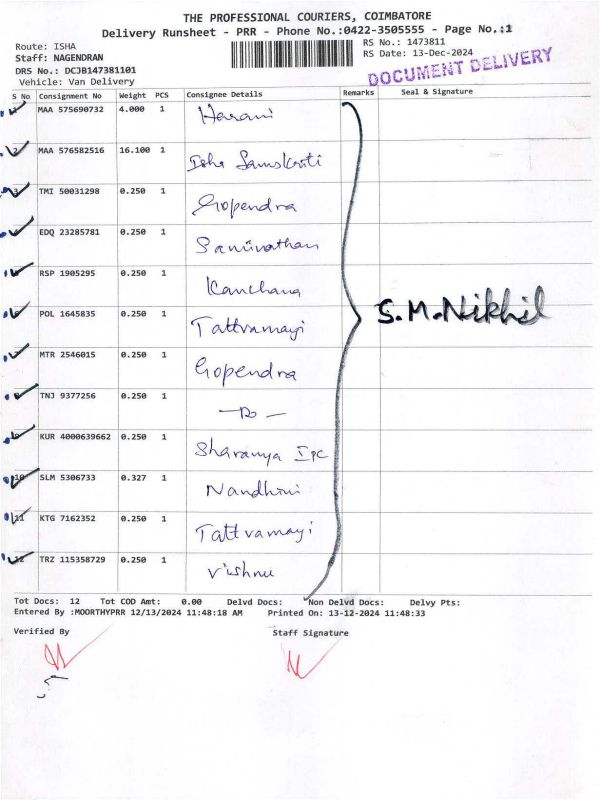 THE PROFESSIONAL COURIERS, COIMBATORE
Delivery Runsheet - PRR - Phone No.:0422-3505555 - Page No.:1
Route: ISHA
RS No.: 1473811
Staff: NAGENDRAN
RS Date: 13-Dec-2024
DRS No.: DCJB147381101
DOCUMENT DELIVERY
Vehicle: Van Delivery
S No Consignment No Weight PCS Consignee Details Remarks Seal & Signature
1 MAA 575690732 4.000 1 Harani
2 MAA 576582516 16.100 1 Isha Samskriti
3 TMI 50031298 0.250 1 Gopendra
4 EDQ 23285781 0.250 1
5 RSP 1905295 0.250 1 Kanchana
6 POL 1645835 0.250 1 Tattvamayi
S.M.Nikhil
7 MTR 2546015 0.250 1 Gopendra
8 TNJ 9377256 0.250 1 -Do-
9 KUR 4000639662 0.250 1 Sharanya IPC
10 SLM 5306733 0.327 1 Nandhini
11 KTG 7162352 0.250 1 Tattvamayi
12 TRZ 115358729 0.250 1 Vishnu
Tot Docs: 12 Tot COD Amt: 0.00 Delvd Docs: Non Delvd Docs: Delvy Pts:
Entered By :MOORTHYPRR 12/13/2024 11:48:18 AM Printed On: 13-12-2024 11:48:33
Verified By Staff Signature